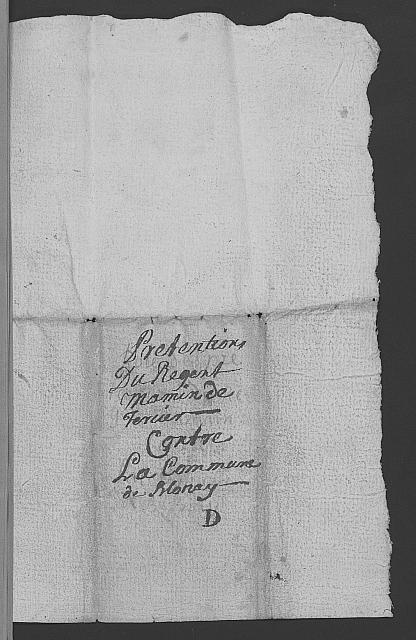 Pretentions
Du Regent
Mamin de
Tercier
Contre
La Commune
de Blonay
D